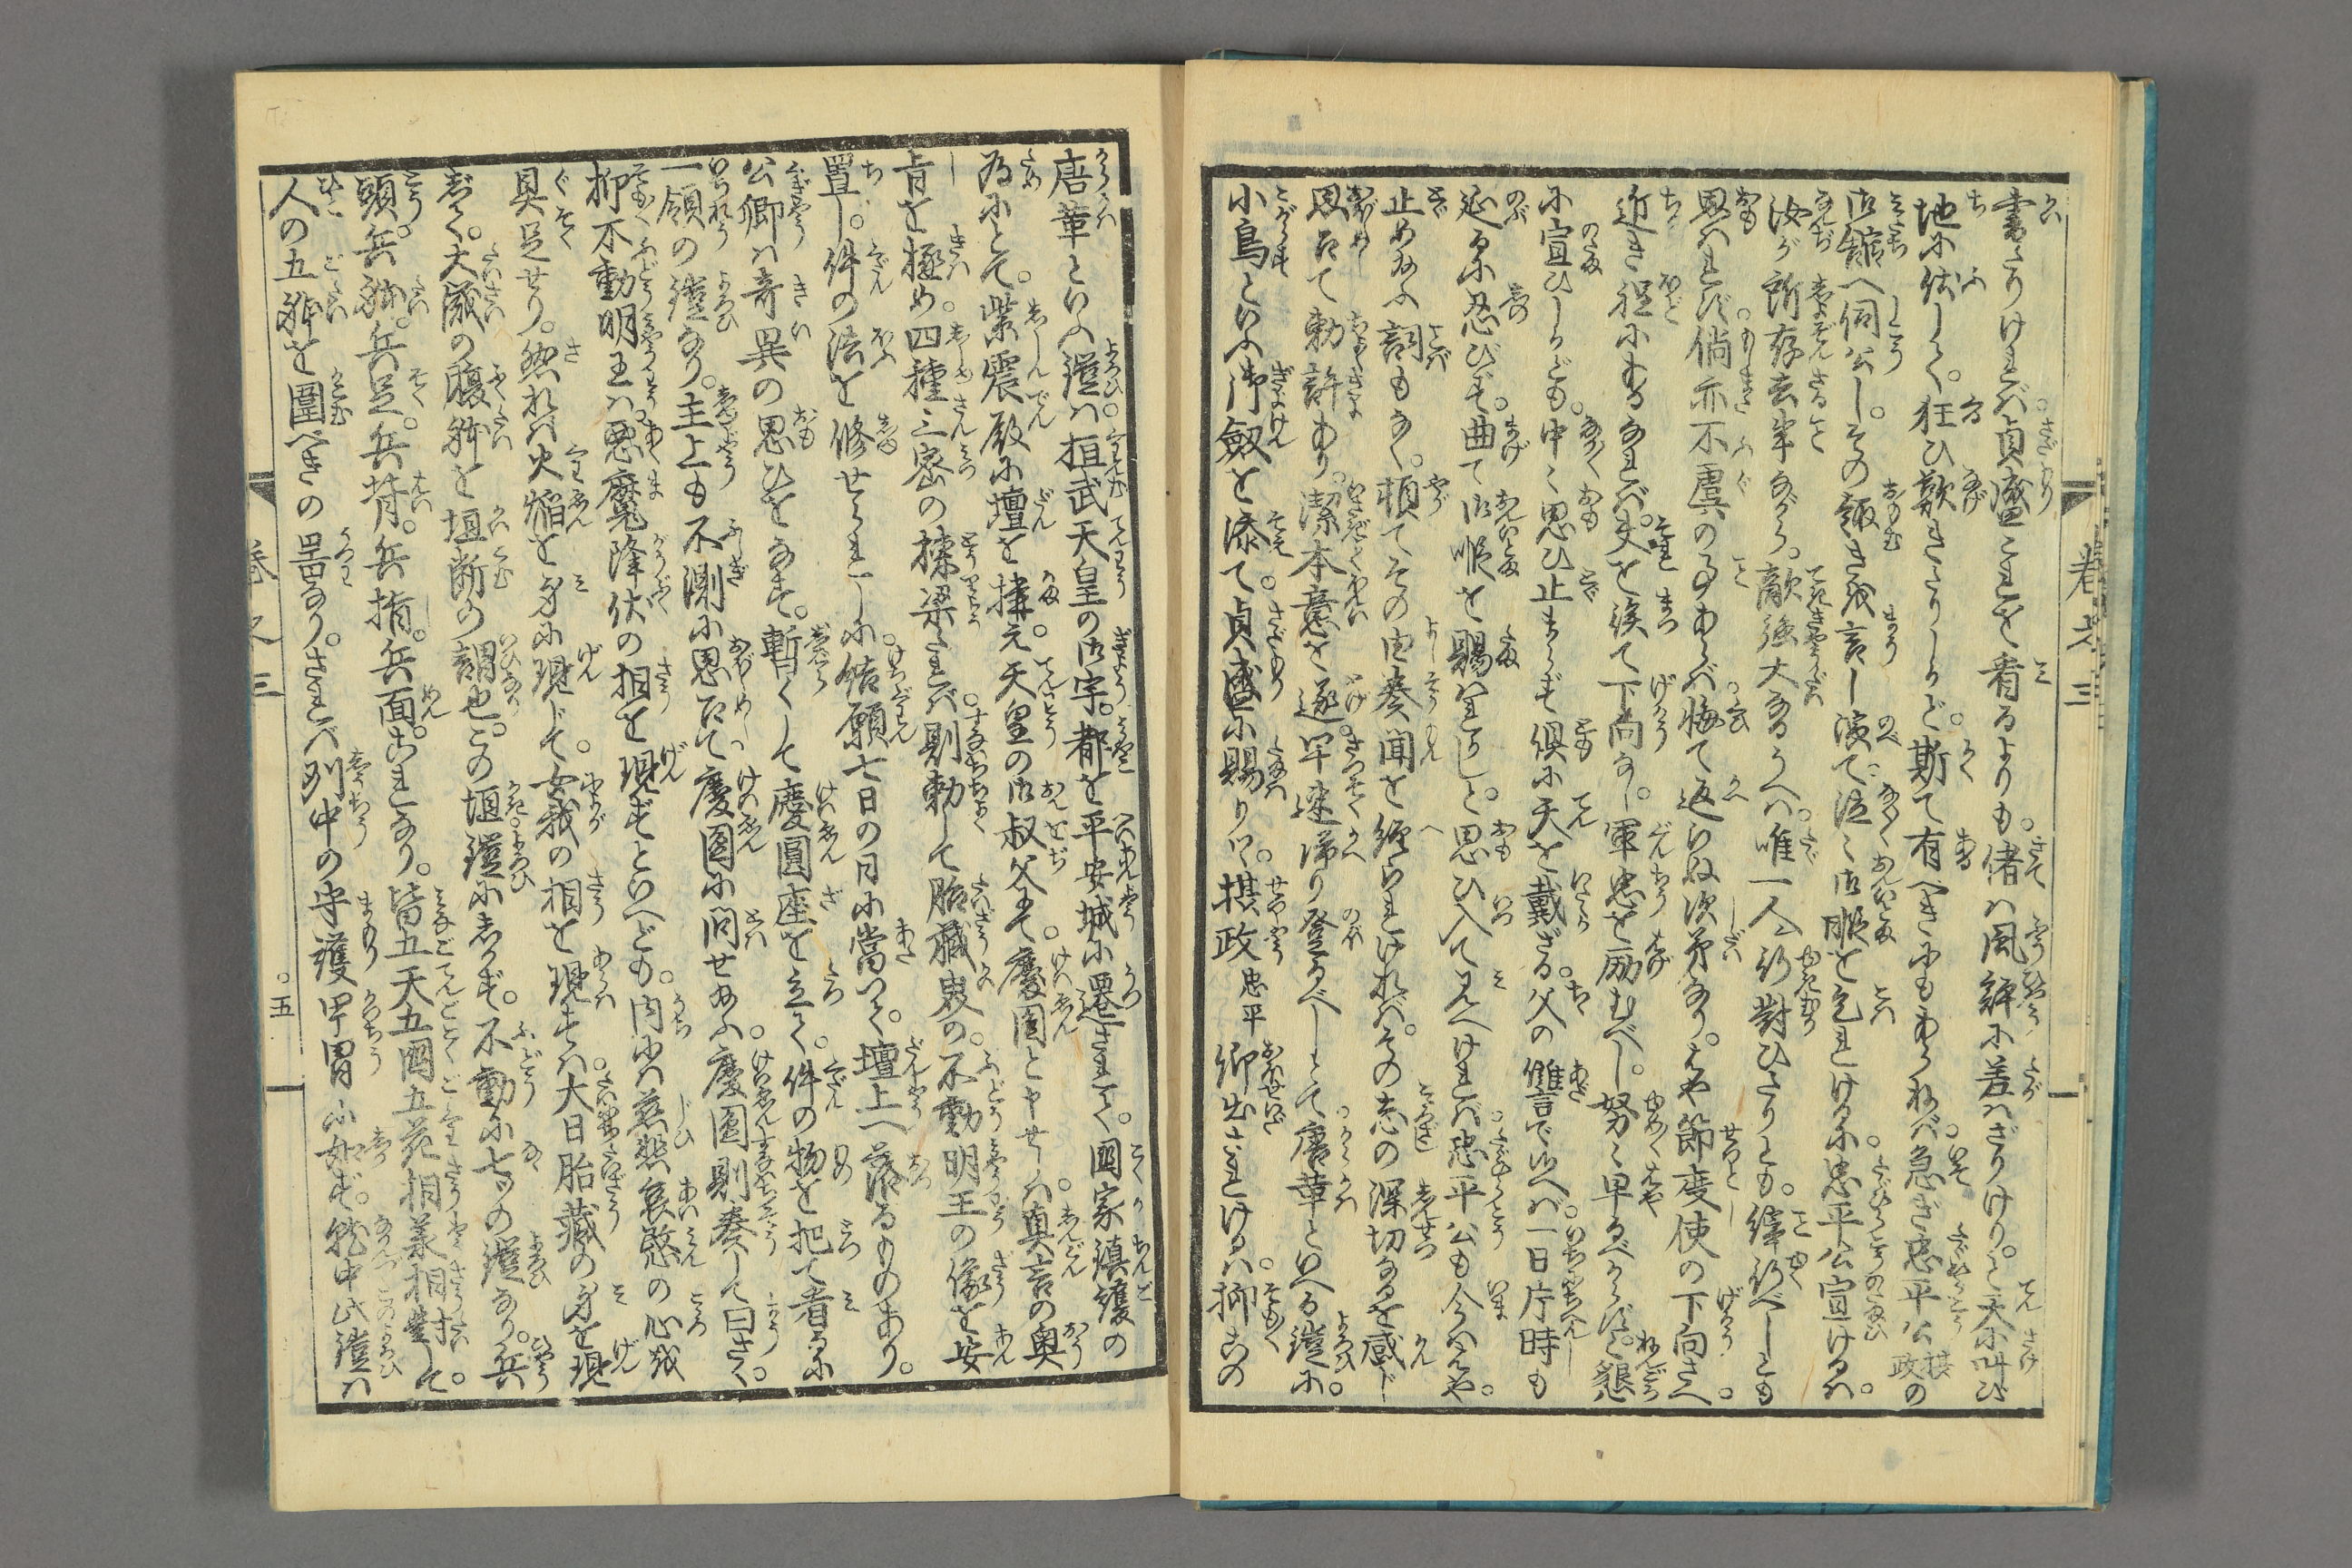 書たりけれバ貞盛これを看るよりも偖ハ風評に差ハざりけりと天に叫び
地に伏して狂ひ歎きたりしかど斯て有べきにもあらねバ急ぎ忠平公摂政の
御館へ伺公しその趣き或言し演て泣々御暇を乞れけるに忠平公宣けるハ
汝が所存去事ながら敵強大なるうへハ唯一人行對ひたりとも緯行べしとも
思ハれず倘亦不虞の事あらバ悔て返らぬ次第なりはや節度使の下向さへ
近き程にあるなれバ夫を俟て下向なし軍忠を励むべし努々早るべからずと懇
に宣ひしかども中々思ひ止まらず倶に天を戴ざる父の讐で候へバ一日片時も
延るに忍びず曲て御暇を賜ハれかしと思ひ入て見へけれバ忠平公も今ハはや
止め給ふ詞もなく頓てその由奏聞を経られけれバその志の深切なるを感じ
思召て勅許あり潔本意を遂早速帰り登るべしとて唐革といへる鎧に
小烏といふ御剱を添て貞盛に賜りつ摂政忠平卿出されけるハ抑この
唐革といふ鎧ハ桓武天皇の御宇都を平安城に遷されて國家鎮護の
為にとて紫震殿に壇を搆え天皇の御叔父にて慶圓と申せしハ真言の奥
旨を極め四種三密の棟梁たれバ則勅して胎蔵界の不動明王の像を安
置し件の法を修せられしに結願七日の日に當つて壇上へ落るものあり
公卿ハ奇異の思ひをなす暫くして慶圓座を立て件の物を把て看るに
一領の鎧なり主上も不測に思召て慶圓に問せ給ふ慶圓則奏して曰さく
抑不動明王ハ悪魔降伏の相を現ずといへども内にハ慈悲哀愍の心或
具足せり然れバ火焔を身に現じて女我の相を現すハ大日胎藏の身を現
じて大歳の腹躰を垣断の謂也この垣鎧にあらず不動に七ツの鎧あり兵
頭兵躰兵足兵背兵指兵面これなり皆五天五國五花相葉相對して
人の五躰を圍べきの器なりされバ列中の守護甲冑に如ず就中此鎧ハ
卷之三
卷之三
五